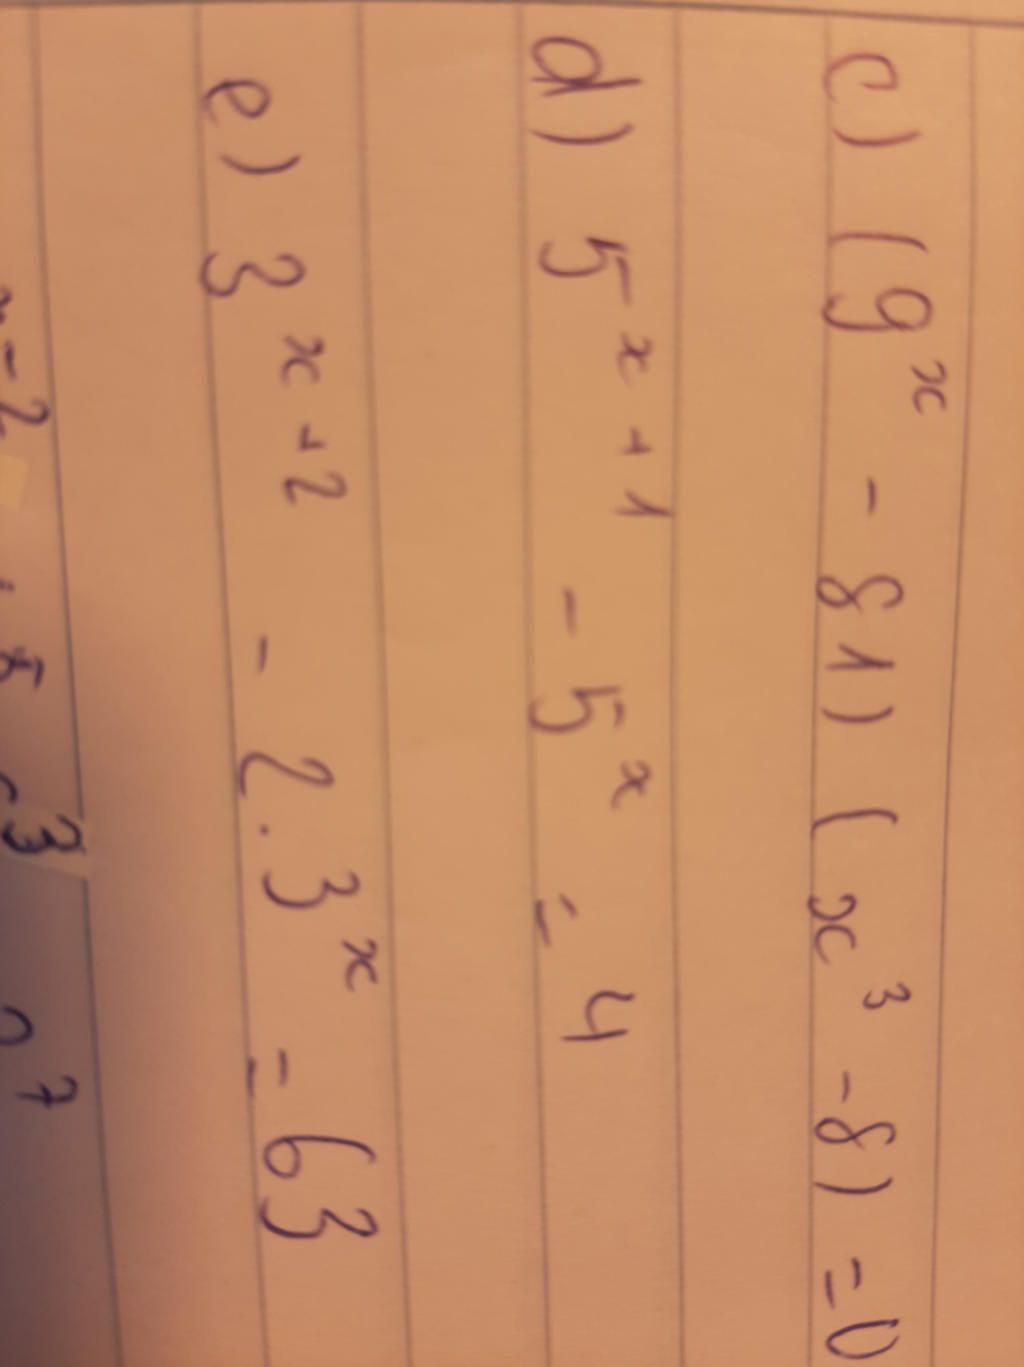 c) (9^x - 81) (x^3 - 8) = 0
d) 5^x+1 - 5^x = 4
e) 3^x+2 - 2.3^x = 63